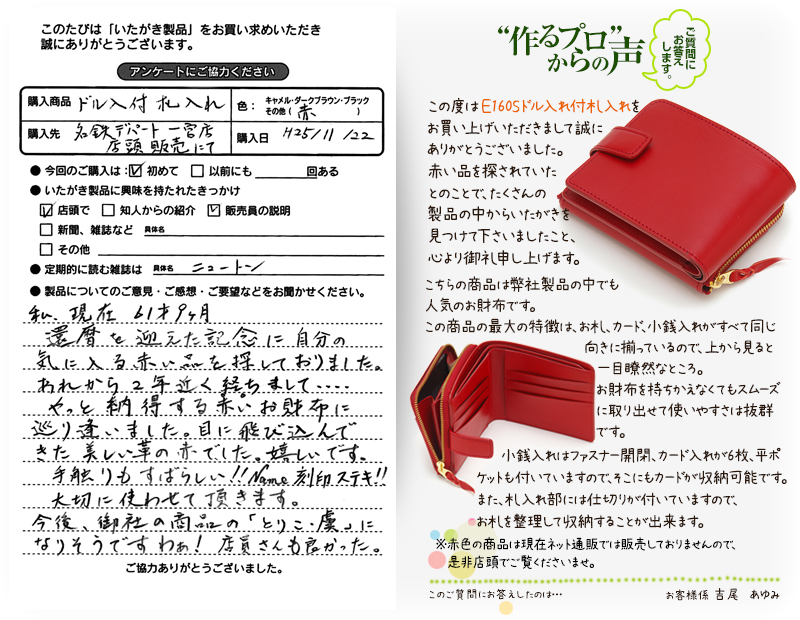 このたびは「いたがき製品」をお買い求めいただき
誠にありがとうございます。
アンケートにご協力ください
購入商品 ドル入付札入れ 色: キャメル・ダークブラウン・ブラック
その他 ( 赤 )
購入先 名鉄デパート一宮店
店頭販売にて
購入日 H25/11/22
● 今回のご購入は:☑ 初めて □ 以前にも 回ある
● いたがき製品に興味を持たれたきっかけ
☑ 店頭で □ 知人からの紹介 ☑ 販売員の説明
□ 新聞、雑誌など 具体名
□ その他
● 定期的に読む雑誌は 具体名 ニュートン
● 製品についてのご意見・ご感想・ご要望などをお聞かせください。
私、現在 61才9ヶ月
還暦を迎えた記念に自分の
気に入る赤い品を探しておりました。
あれから2年近く経ちまして・・・・
やっと納得する赤いお財布に
巡り逢いました。目に飛び込んで
きた美しい革の赤でした。嬉しいです。
手触りもすばらしい!!Name刻印ステキ!!
大切に使わせて頂きます。
今後、御社の商品の「とりこ:虜」に
なりそうですわぁ! 店員さんも良かった。
ご協力ありがとうございました。
“作るプロ”
からの声
ご質問に
お答え
します。
この度はE160Sドル入れ付札入れを
お買い上げいただきまして誠に
ありがとうございました。
赤い品を探されていた
とのことで、たくさんの
製品の中からいたがきを
見つけて下さいましたこと、
心より御礼申し上げます。
こちらの商品は弊社製品の中でも
人気のお財布です。
この商品の最大の特徴は、お札、カード、小銭入れがすべて同じ
向きに揃っているので、上から見ると
一目瞭然なところ。
お財布を持ちかえなくてもスムーズ
に取り出せて使いやすさは抜群
です。
小銭入れはファスナー開閉、カード入れが6枚、平ポ
ケットも付いていますので、そこにもカードが収納可能です。
また、札入れ部には仕切りが付いていますので、
お札を整理して収納することが出来ます。
※赤色の商品は現在ネット通販では販売しておりませんので、
是非店頭でご覧くださいませ。
このご質問にお答えしたのは… お客様係 吉尾 あゆみ